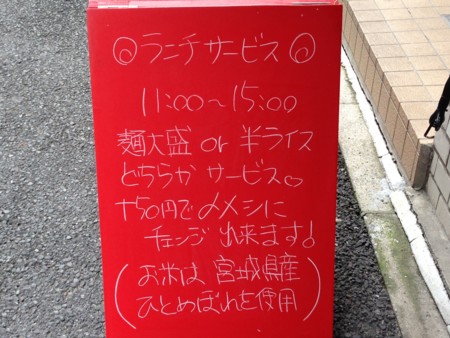 ◎ランチサービス◎
11:00～15:00
麺大盛 or 半ライス
どちらかサービス♡
+50円で〆メシに
チェンジ出来ます!
(お米は 宮城県産
ひとめぼれを使用)